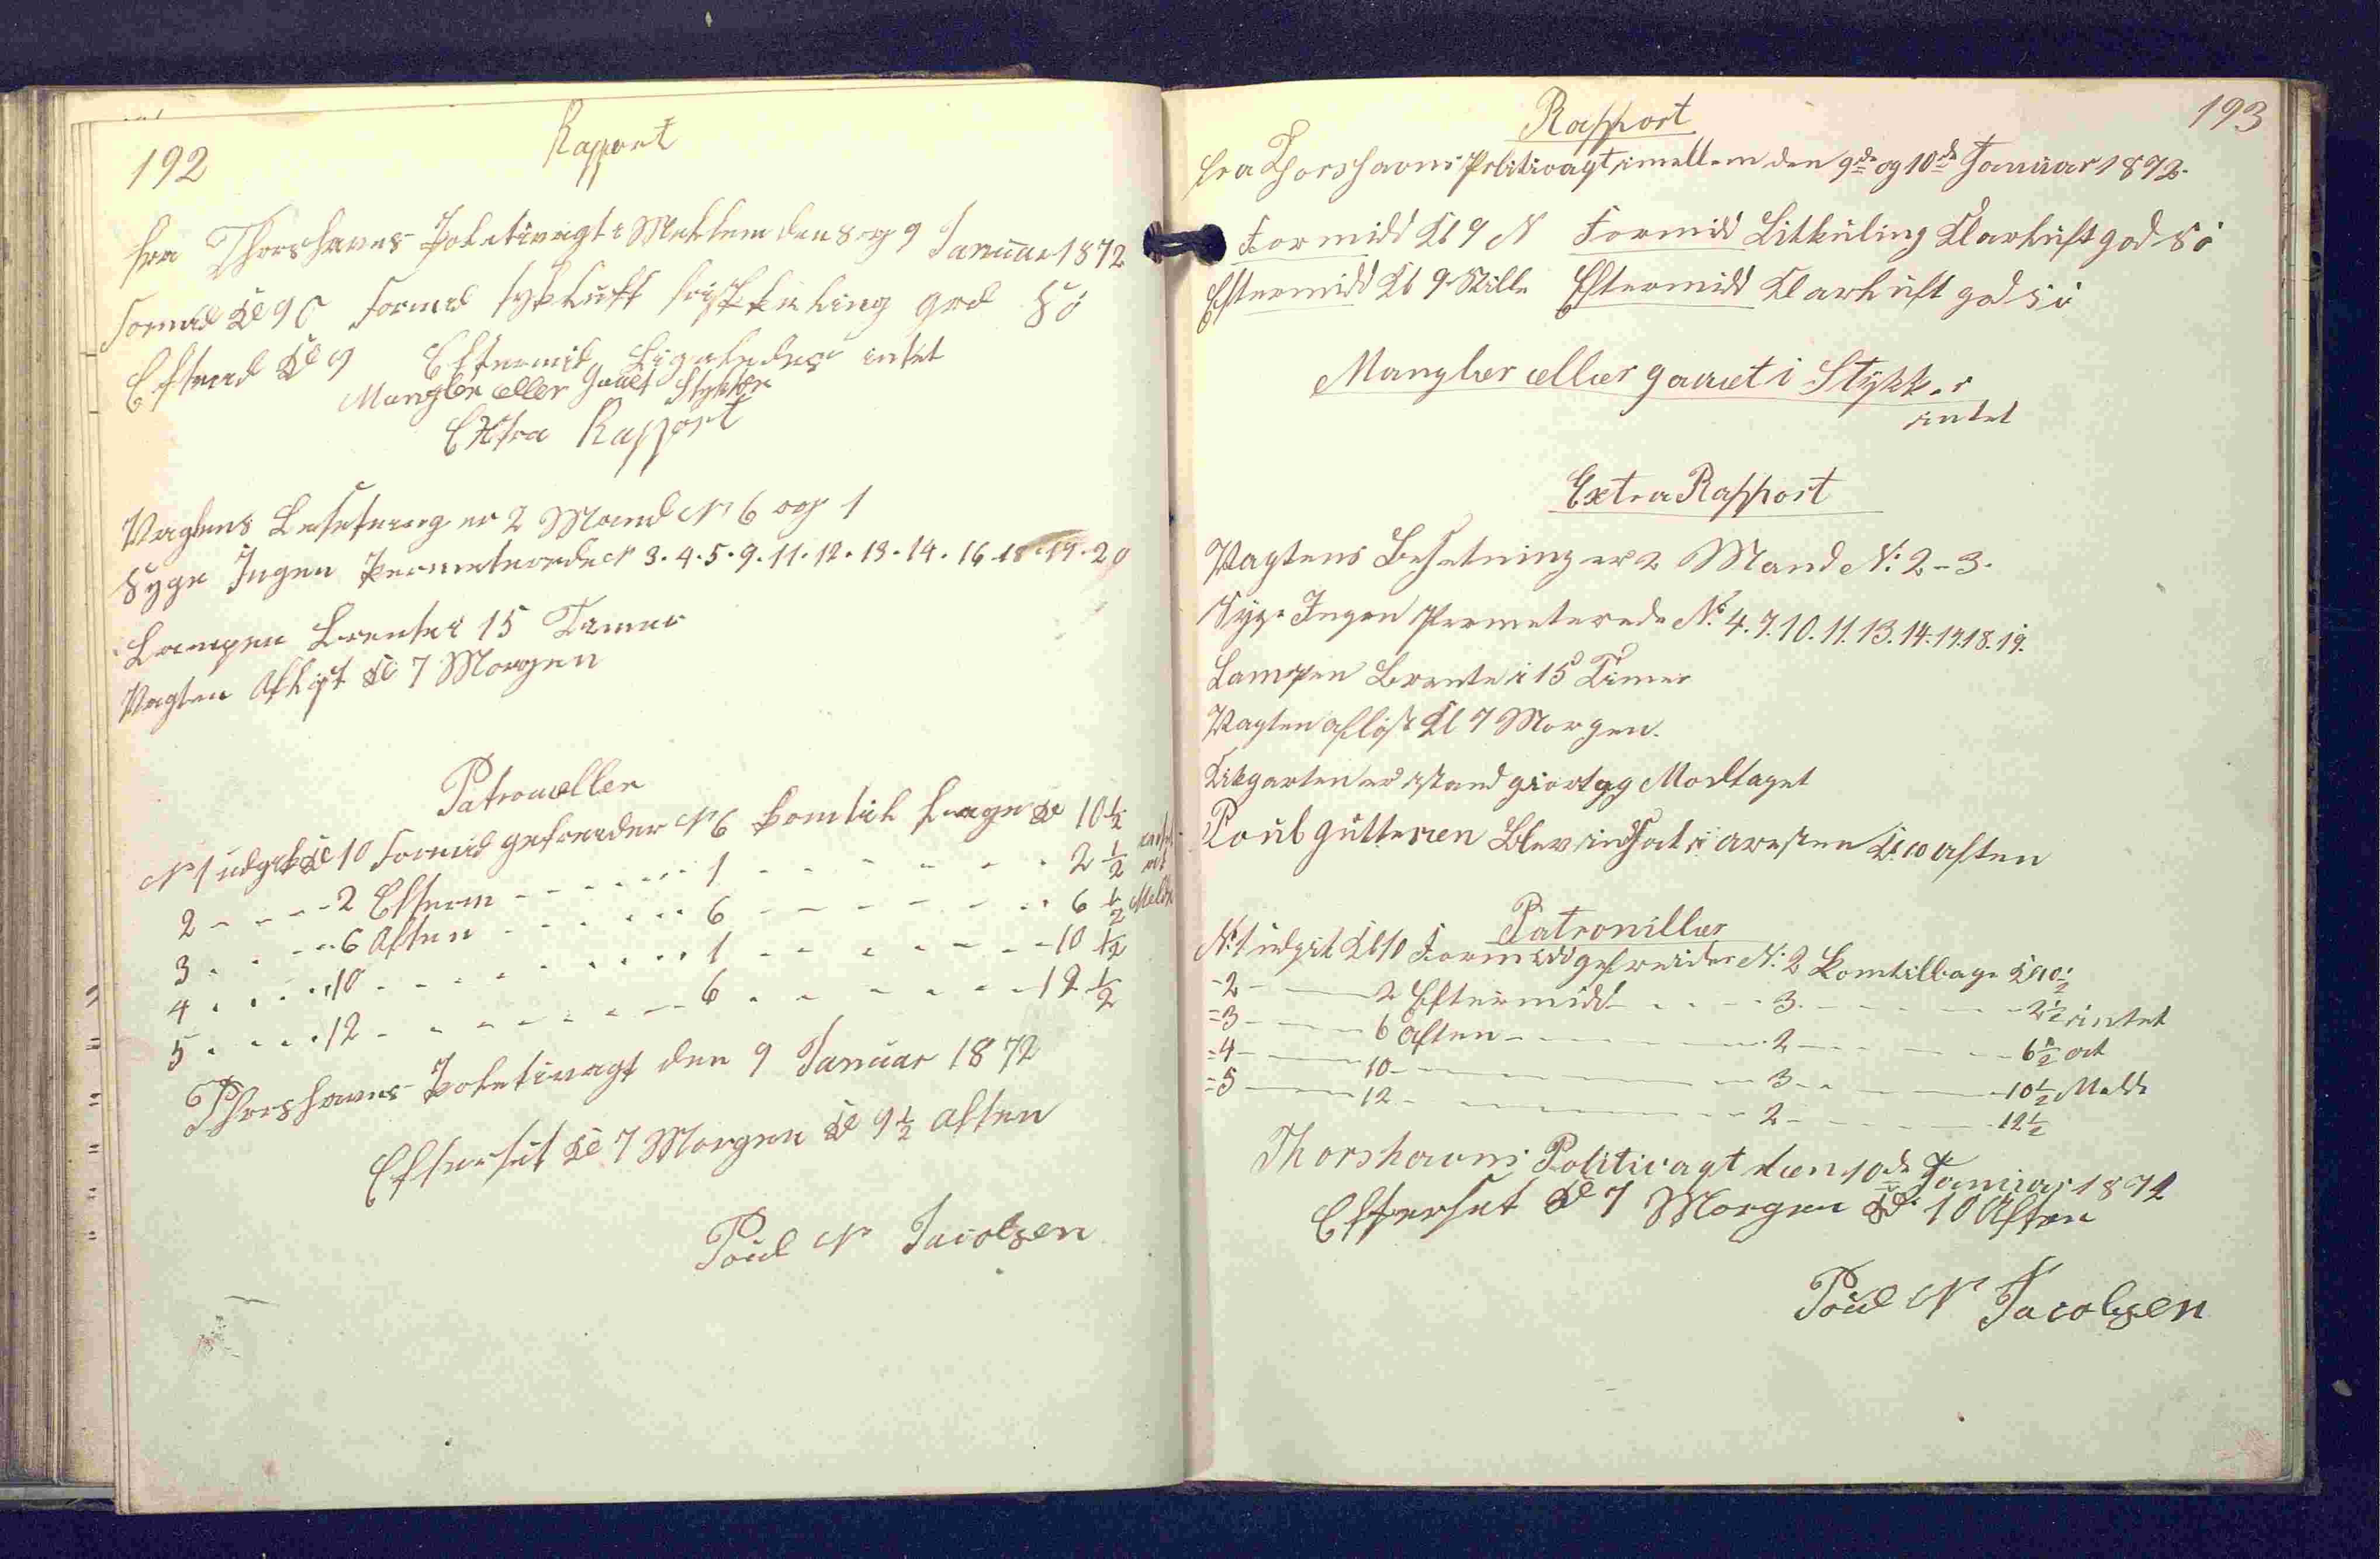 192
Rapport
fra Thorshavns Poletivagt i Mellem den 8 og 9 Januar 1872
Formid Kl 9 O Formid tykluft friskkuling god Sö
Eftermd Kl 9 Eftermid Ligeledes intet
Mangler eller Gaaet Stykker
Extra Rapport
Vagtens Besetning er 2 Mand N 6 og 1
Syge Ingen Permeterede N 3. 4. 5. 9. 11. 12. 13. 14. 16. 18. 19. 20
Lampen Brente i 15 Timer
Vagten Aflöst Kl 7 Morgen
Patroueller
N 1 udgik Kl 10 Formid gefreider N 6 kom tilbage Kl 10 1/2 intet
2 - - - 2 Efterm - - - - 1 - - - - 2 1/2 at
3 - - - 6 Aften - - - - 6 - - - - 6 1/2 Melde
4 - - - 10 - - - - 1 - - - - 10 1/2
5 - - - 12 - - - - 6 - - - - 12 1/2
Thorshavns Poletivagt den 9 Januar 1872
Efterset Kl 7 Morgen Kl 9 1/2 Aften
Poul N Jacobsen
193
Rapport
fra Thorshavns Politivagt imellem den 9de og 10de Januar 1872.
Formidd Kl 9 N Formidd Litkuling Klarluft god Sö
Eftermidd Kl 9 Stille Eftermidd Klarluft god Sö
Mangler eller gaaet i Stykker
intet
Extra Rapport
Vagtens Besetning er 2 Mand N: 2-3.
Syge Ingen Permeterede No 4. 7. 10. 11. 13. 14. 17. 18. 19.
Lampen Brente i 15 Timer
Vagten aflöst Kl 7 Morgen.
Kikgarten er istand giort og Modtaget
Poul Guttesen Blev indsat i aresten Kl 10 aften
Patroniller
N: 1 udgik Kl 10 Formidd gefreider N: 2 Kom tilbage Kl 10 1/2
-2 - - 2 Eftermidd - - - 3 - - - 2 1/2 intet
=3 - - 6 aften - - - 2 - - - 6 1/2 at
=4 - - 10 - - - 3 - - - 10 1/2 Melde
=5 - - 12 - - - 2 - - - 12 1/2
Thorshavns Politivagt den 10de Januar 1872
Efterset Kl 7 Morgen Kl 10 Aften
Poul N Jacobsen